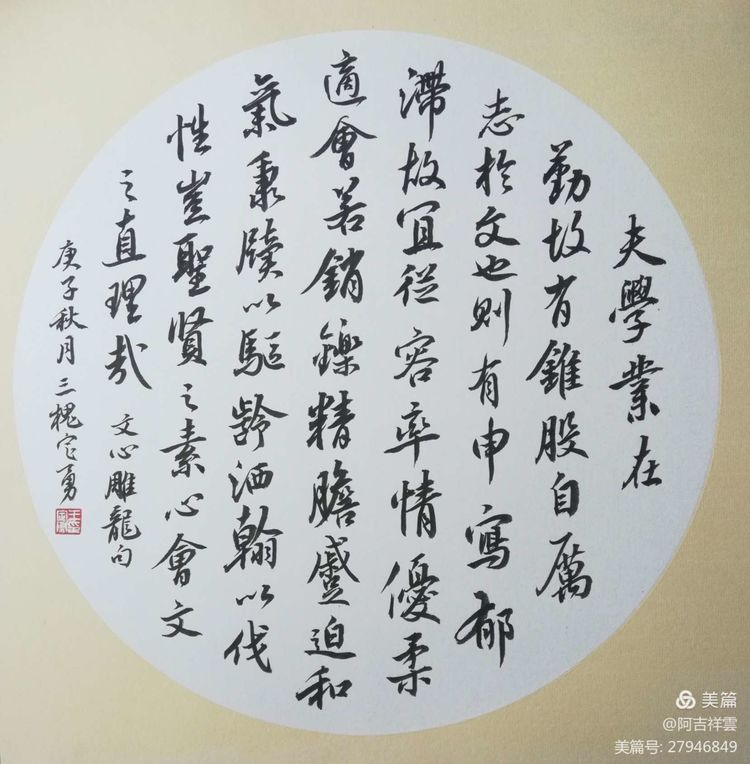 夫學業在
勤故有錐股自厲
志於文也則有申寫郁
滯故宜從容率情優柔
適會若銷鑠精膽蹙迫和
氣秉牘以驅齡洒翰以伐
性豈聖賢之素心會文
之直理哉 文心雕龍句
庚子秋月三槐宏勇
美篇
@阿吉祥雲
美篇号: 27946849